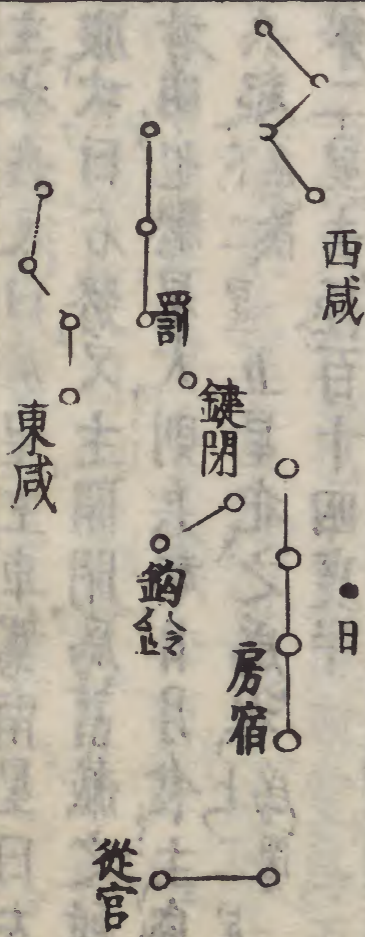 西咸
罰
鍵閉
東咸
鈎鈐
日
房宿
從官